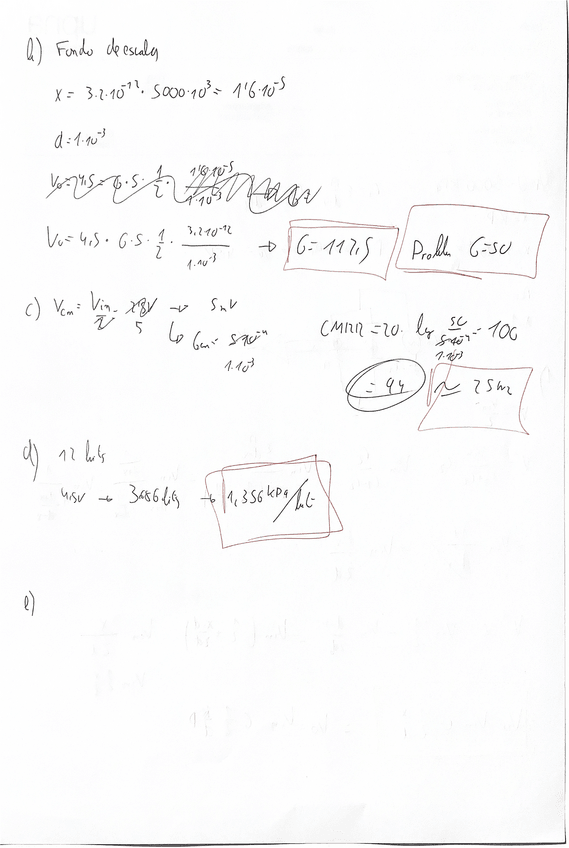 b) Fondo de escala
x = 3.2·10^-12 · 5000·10^3 = 1'6·10^-5
d = 1·10^-3
V0 = 4,5 = G·5·1/2· 1'6·10^-5 / 1·10^-3
V0 = 4,5 = G·5·1/2· 3.2·10^-12 / 1·10^-3 → G = 112,5
G=50
c) Vcm = Vin/2 = 5 → 5mV
↳ Gcm = 5·10^-4 / 1·10^-3
CMRR = 20· log 50 / 5·10^-4 / 1·10^-3 = 100
= 94 ≈
d) 12 bits
4,5V → 3686 → 1,356 kPa/bit
e)